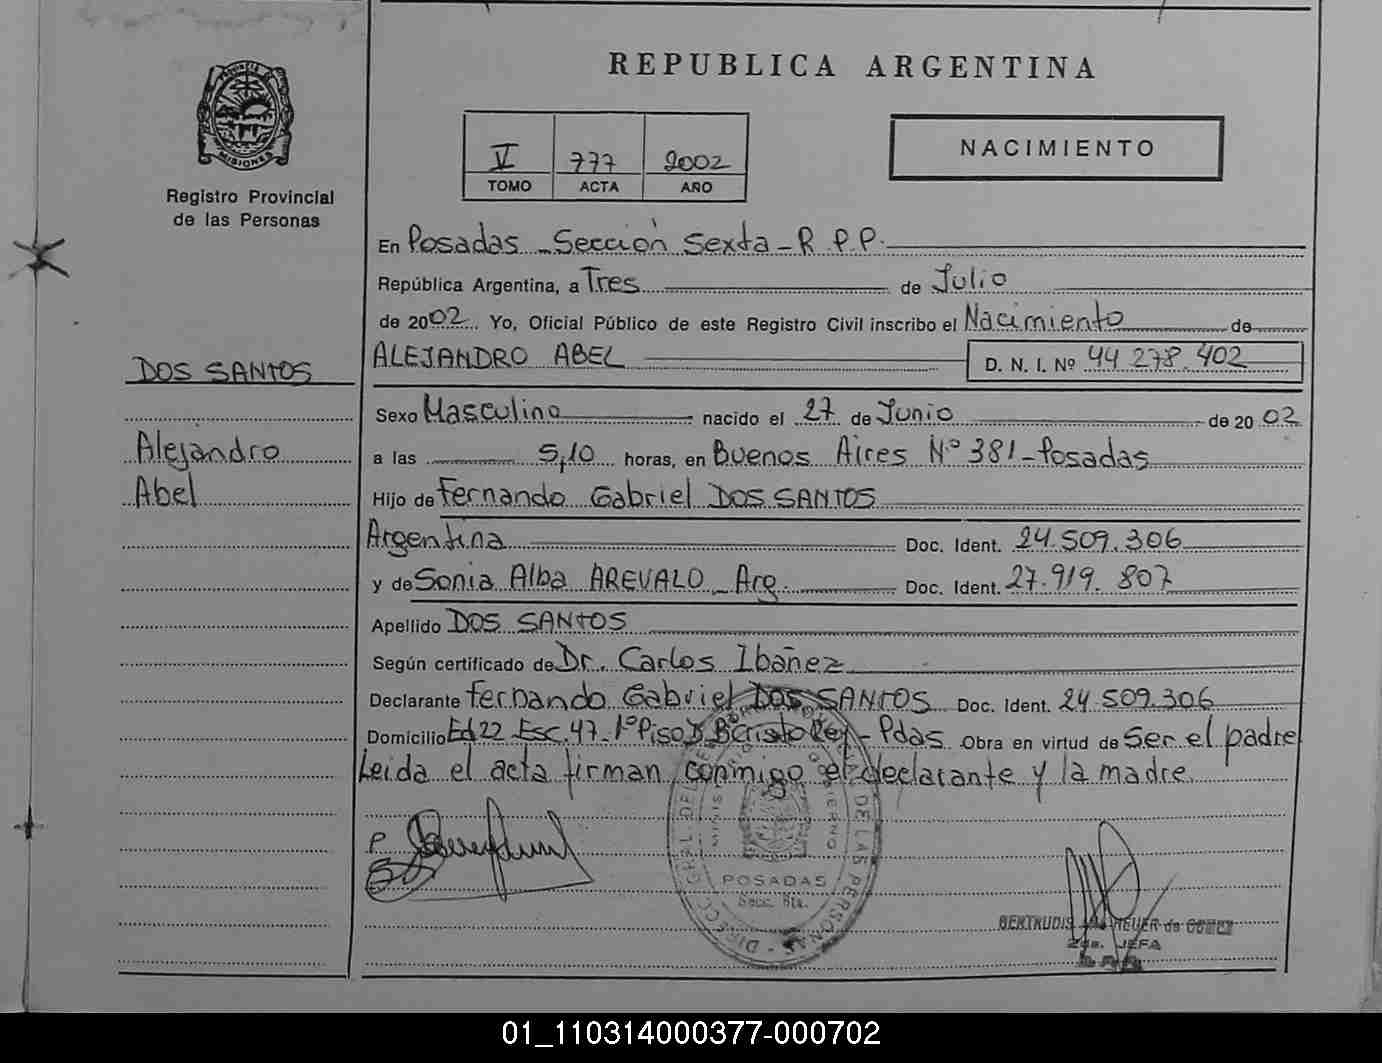 REPUBLICA ARGENTINA
PROVINCIA DE
MISIONES
Registro Provincial
de las Personas
V 777 2002
TOMO ACTA AÑO
NACIMIENTO
En Posadas - Sección Sexta - R.P.P.
República Argentina, a Tres de Julio
de 2002. Yo, Oficial Público de este Registro Civil inscribo el Nacimiento de
ALEJANDRO ABEL D. N. I. Nº 44 278.402
DOS SANTOS
Alejandro
Abel
Sexo Masculino nacido el 27 de Junio de 2002
a las 5,10 horas, en Buenos Aires Nº 381 - Posadas
Hijo de Fernando Gabriel DOS SANTOS
Argentina Doc. Ident. 24.509.306
y de Sonia Alba AREVALO Arg. Doc. Ident. 27.919.807
Apellido DOS SANTOS
Según certificado de Dr. Carlos Ibáñez
Declarante Fernando Gabriel DOS SANTOS Doc. Ident. 24.509.306
Domicilio Ed 22 Esc. 47 - 1º Piso - Pdas. Obra en virtud de Ser el padre
Leida el acta firman conmigo el declarante y la madre.
DE LAS PERSONAS
POSADAS
Secc. 6ta.
BERTRUDIS de GOMEZ
2da. JEFA
01_110314000377-000702